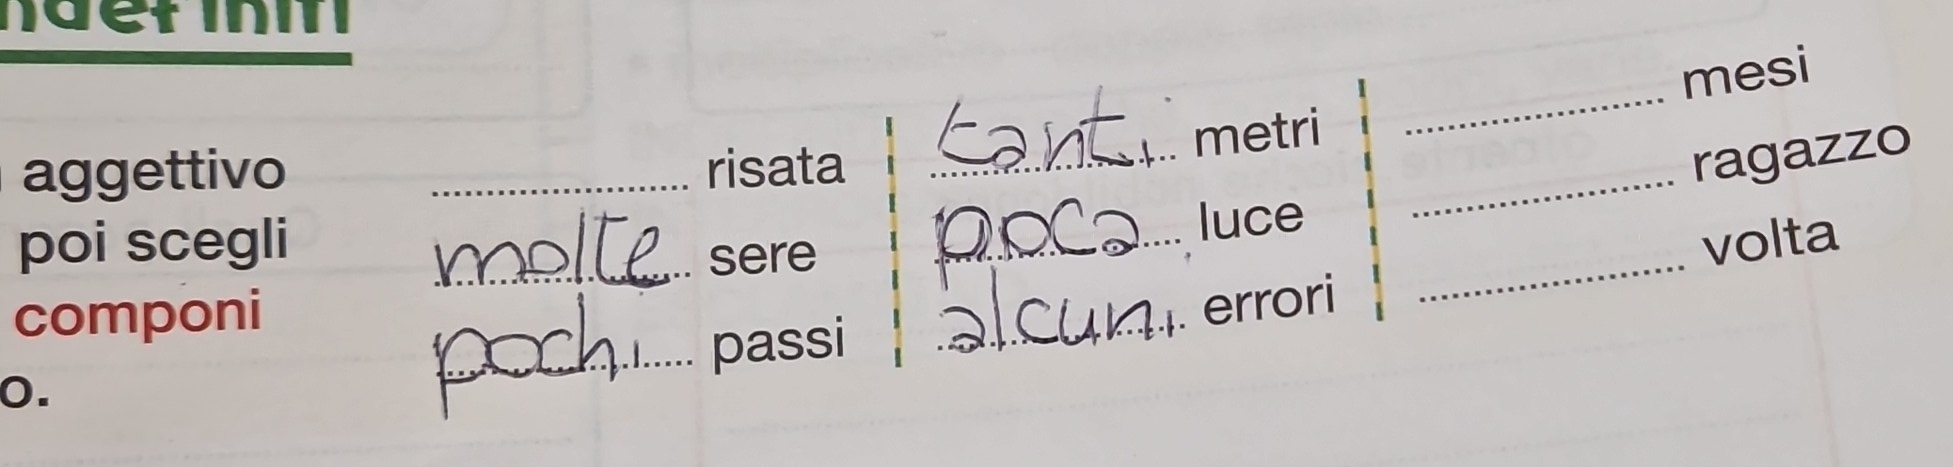 ndefiniti
aggettivo
poi scegli
componi
o.
.................... risata
molte sere
pochi passi
tanti metri
poca luce
alcuni errori
.................... mesi
.................... ragazzo
.................... volta